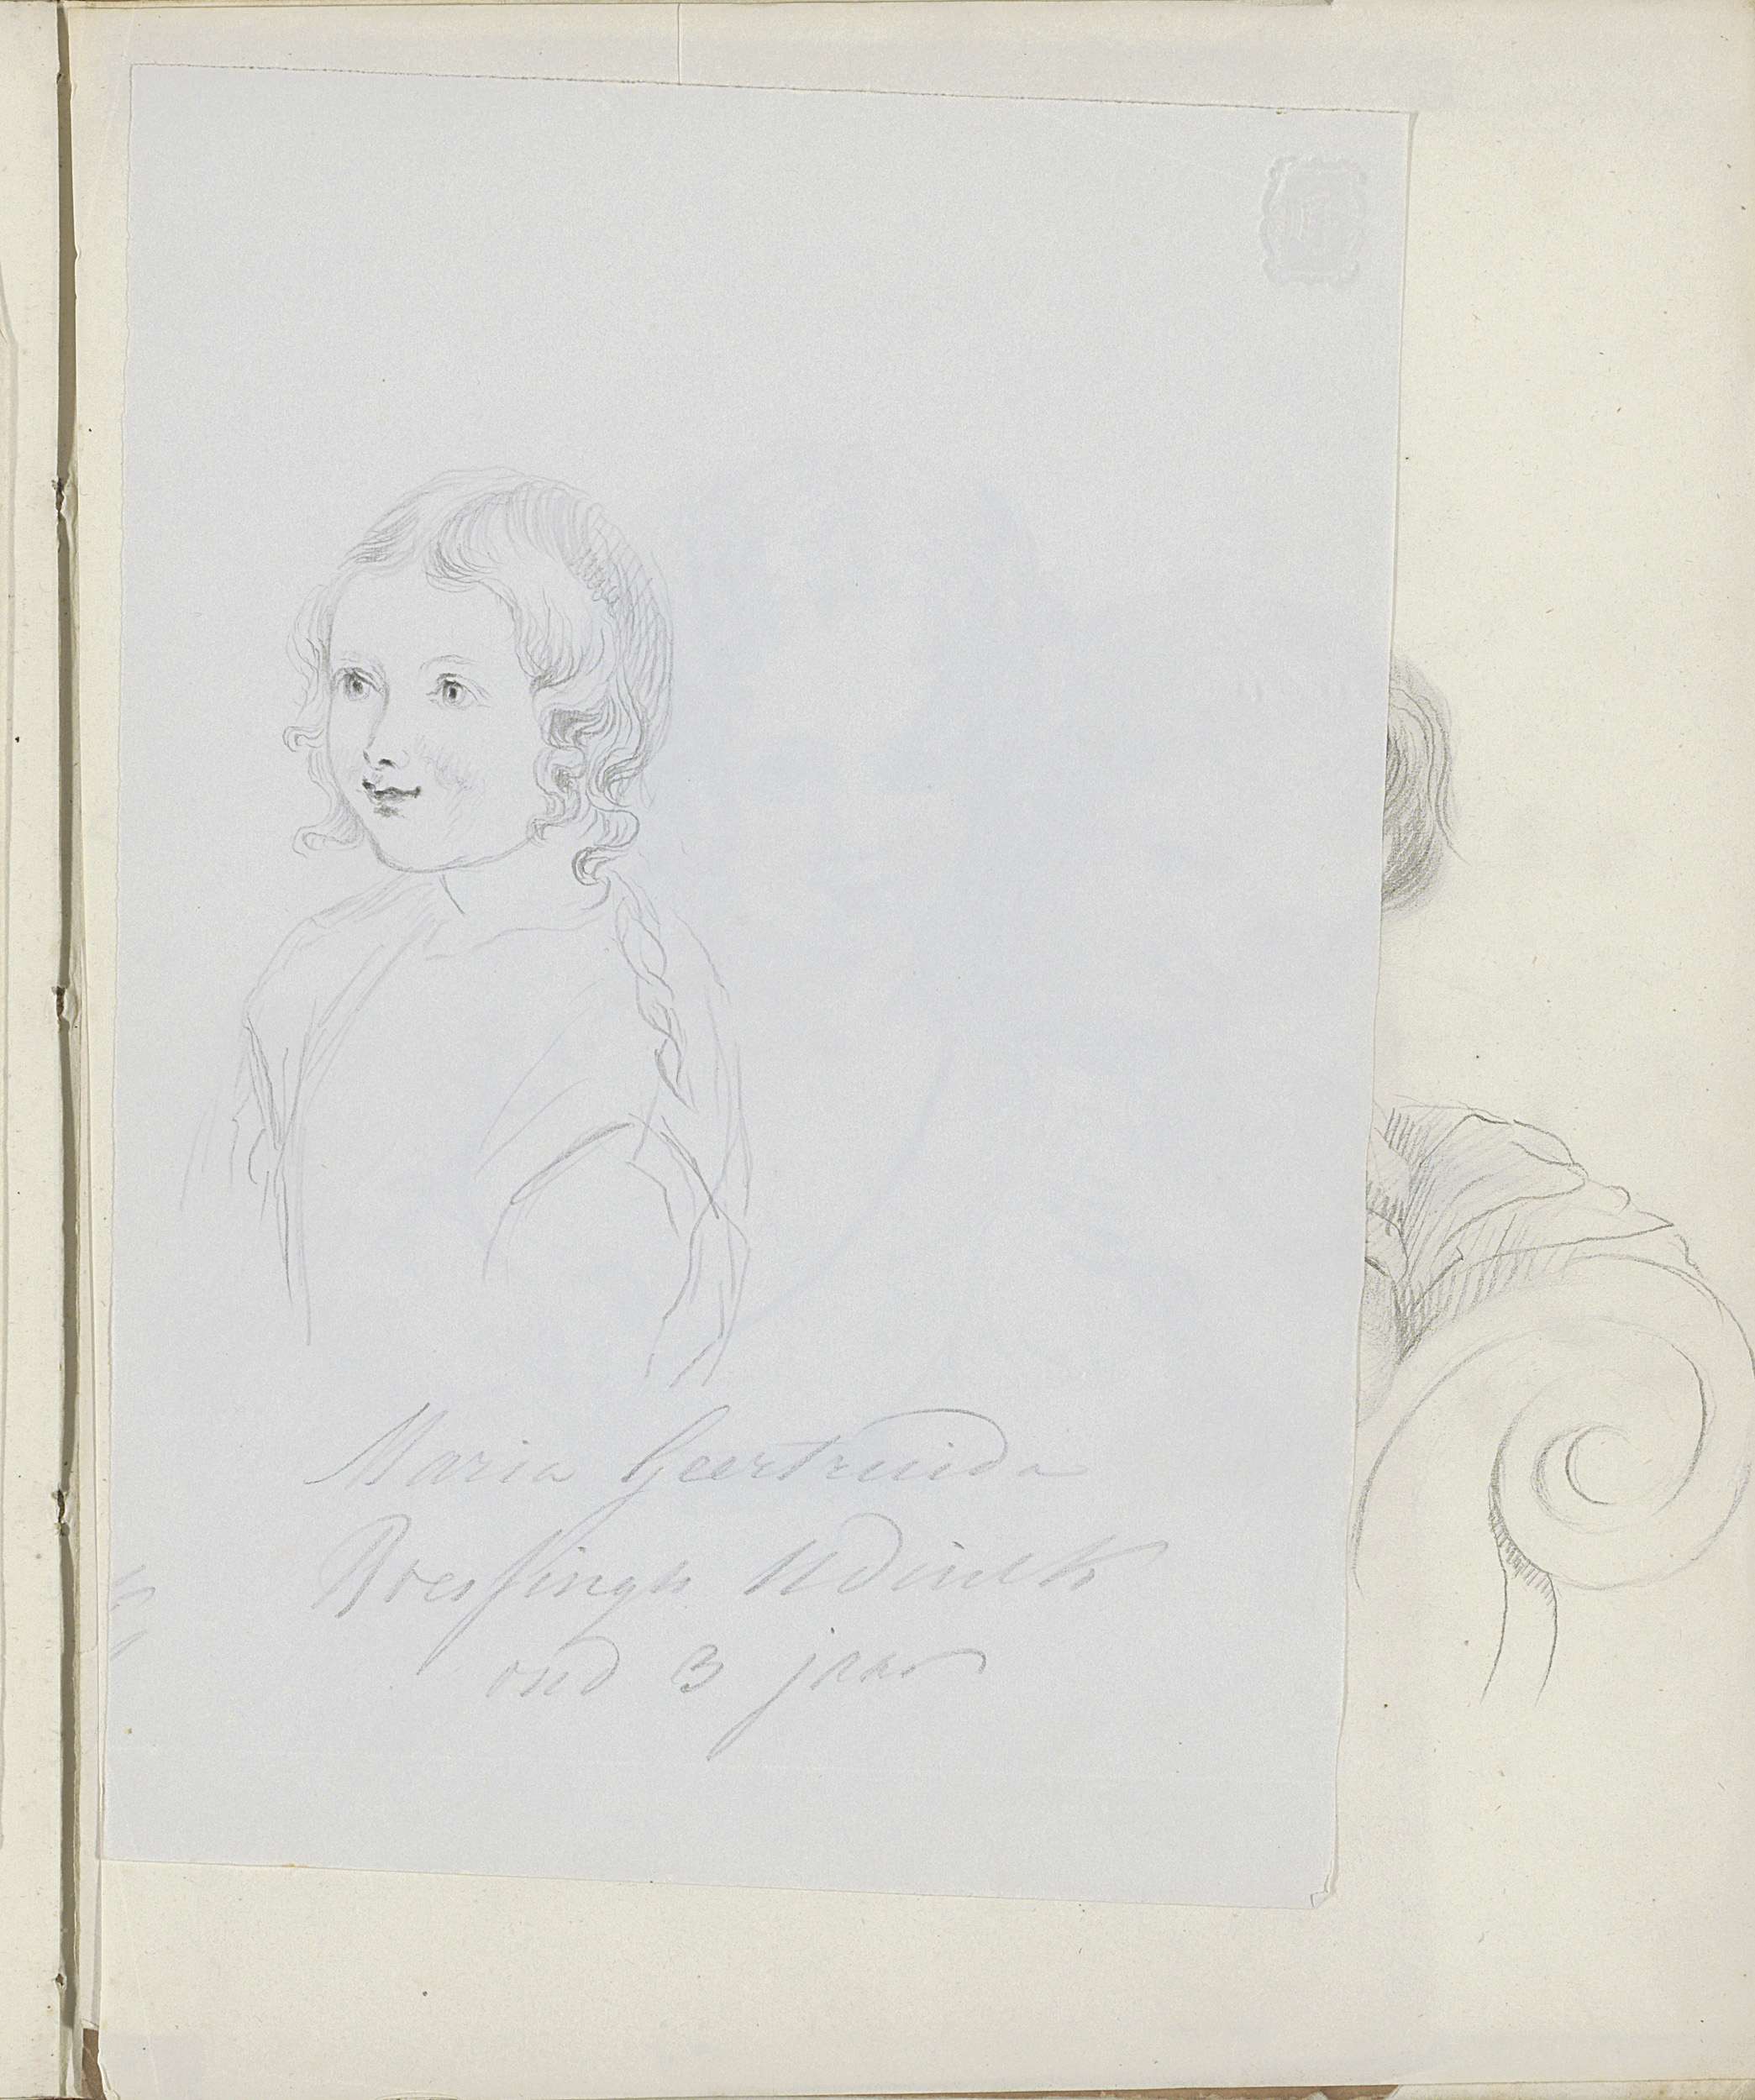 Maria Geertruida
Roessingh Udinck
oud 3 jaar